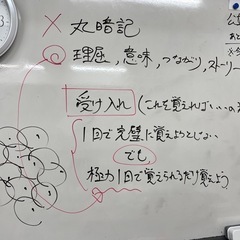 × 丸暗記
◎ 理屈、意味、つながり、ストーリー
受け入れ（これを覚えればいい…の
1回で完璧に覚えようとしない
でも
極力1回で覚えられるだけ覚えよう